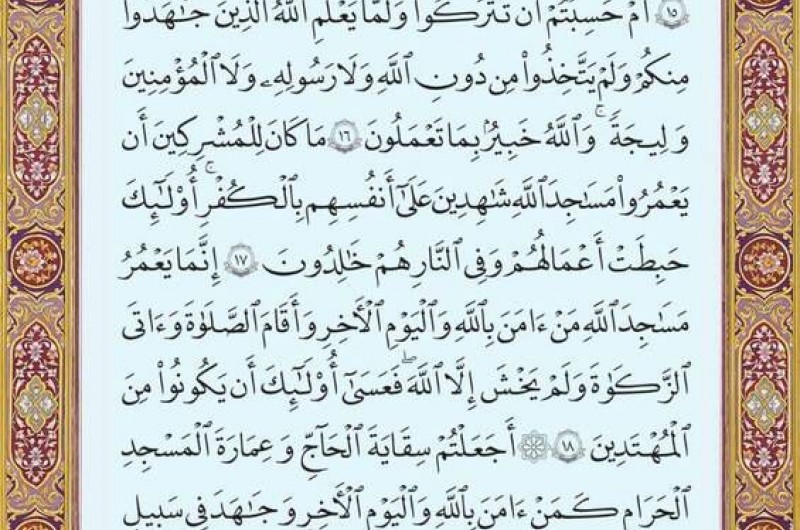 ١٥ أَمْ حَسِبْتُمْ أَن تُتْرَكُوا۟ وَلَمَّا يَعْلَمِ ٱللَّهُ ٱلَّذِينَ جَـٰهَدُوا۟
مِنكُمْ وَلَمْ يَتَّخِذُوا۟ مِن دُونِ ٱللَّهِ وَلَا رَسُولِهِۦ وَلَا ٱلْمُؤْمِنِينَ
وَلِيجَةً ۚ وَٱللَّهُ خَبِيرٌۢ بِمَا تَعْمَلُونَ ١٦ مَا كَانَ لِلْمُشْرِكِينَ أَن
يَعْمُرُوا۟ مَسَـٰجِدَ ٱللَّهِ شَـٰهِدِينَ عَلَىٰٓ أَنفُسِهِم بِٱلْكُفْرِ ۚ أُو۟لَـٰٓئِكَ
حَبِطَتْ أَعْمَـٰلُهُمْ وَفِى ٱلنَّارِ هُمْ خَـٰلِدُونَ ١٧ إِنَّمَا يَعْمُرُ
مَسَـٰجِدَ ٱللَّهِ مَنْ ءَامَنَ بِٱللَّهِ وَٱلْيَوْمِ ٱلْـَٔاخِرِ وَأَقَامَ ٱلصَّلَوٰةَ وَءَاتَى
ٱلزَّكَوٰةَ وَلَمْ يَخْشَ إِلَّا ٱللَّهَ ۖ فَعَسَىٰٓ أُو۟لَـٰٓئِكَ أَن يَكُونُوا۟ مِنَ
ٱلْمُهْتَدِينَ ١٨ ۞ أَجَعَلْتُمْ سِقَايَةَ ٱلْحَآجِّ وَعِمَارَةَ ٱلْمَسْجِدِ
ٱلْحَرَامِ كَمَنْ ءَامَنَ بِٱللَّهِ وَٱلْيَوْمِ ٱلْـَٔاخِرِ وَجَـٰهَدَ فِى سَبِيلِ